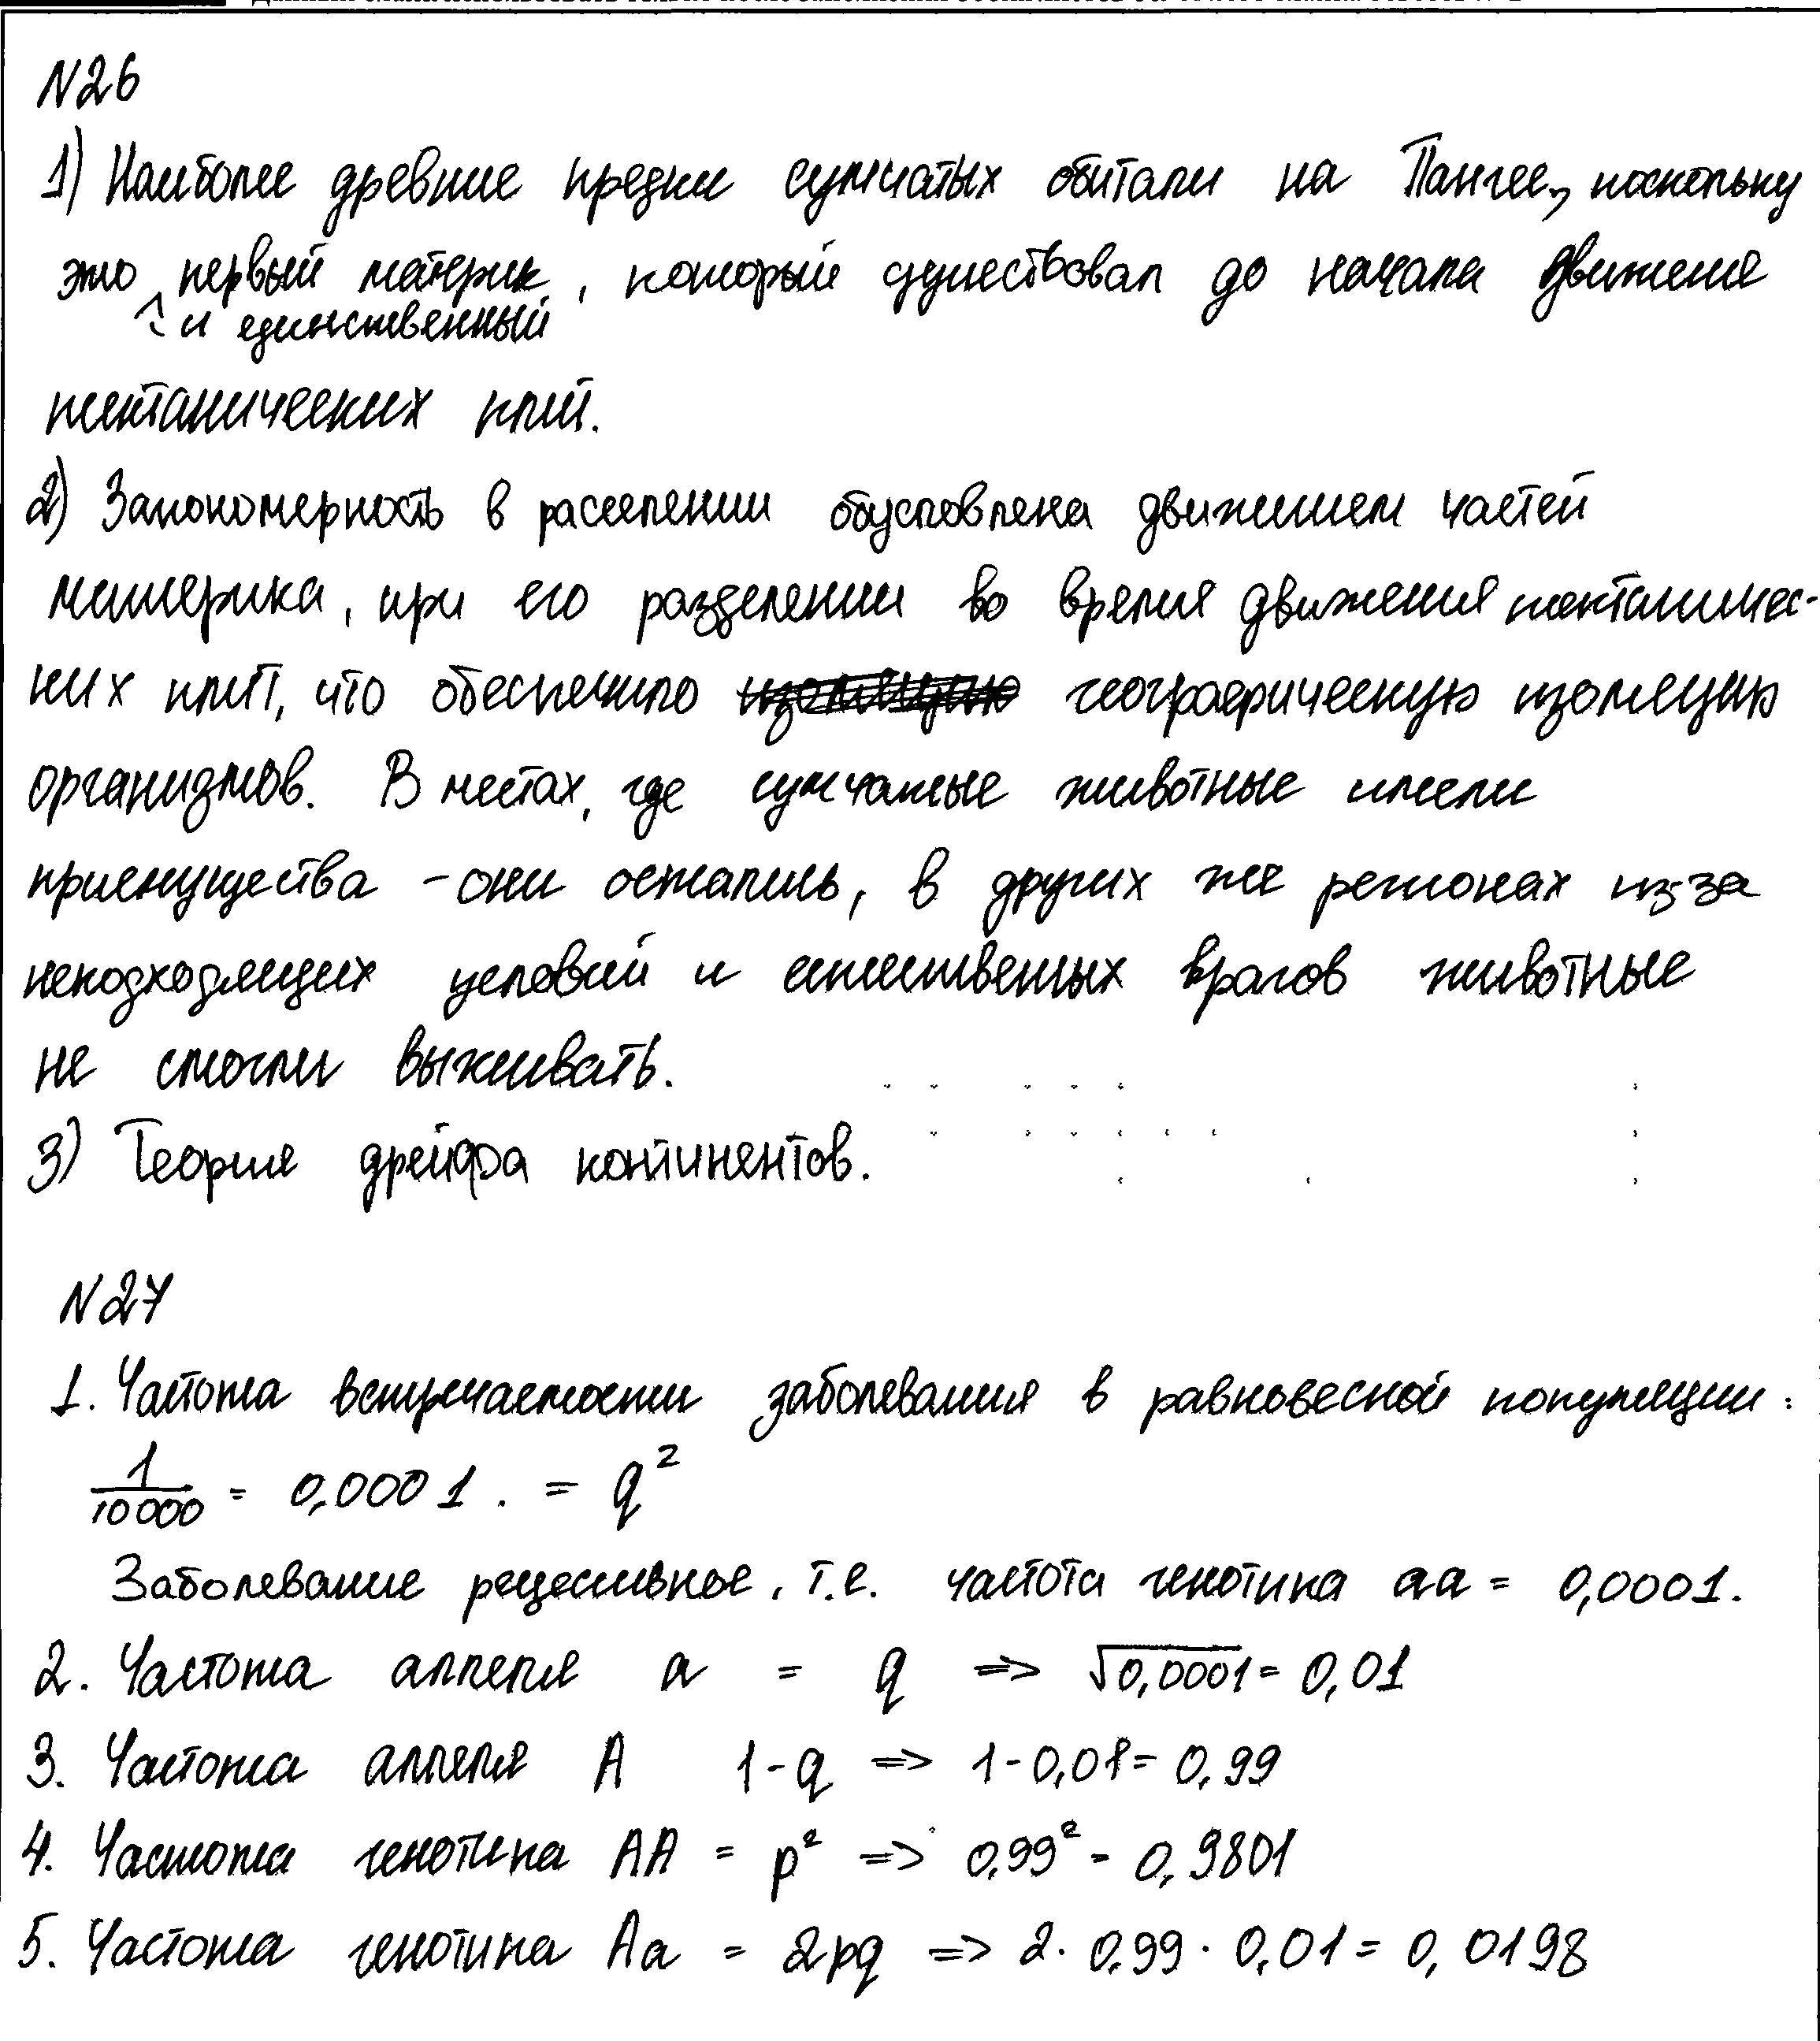 N26
1) Наиболее древние предки сумчатых обитали на Пангее, поскольку
это первый материк, который существовал до начала движения
и единственный
тектанических плит.
2) Закономерность в расселении обусловлена движением частей
материка, при его разделении во время движения тектаничес-
ких плит, что обеспечило географическую изоляцию
организмов. В местах, где сумчатые животные имели
приемущества - они остались, в других же регионах из-за
неподходящих условий и естественных врагов животные
не смогли выживать.
3) Теория дрейфа континентов.
N27
1. Частота встречаемости заболевания в равновесной популяции:
1/10000 = 0,0001. = q²
Заболевание рецессивное, т.е. частота генотипа aa = 0,0001.
2. Частота аллеля a = q => √0,0001 = 0,01
3. Частота аллеля A 1-q => 1-0,01 = 0,99
4. Частота генотипа AA = p² => 0,99² = 0,9801
5. Частота генотипа Aa = 2pq => 2·0,99·0,01 = 0,0198